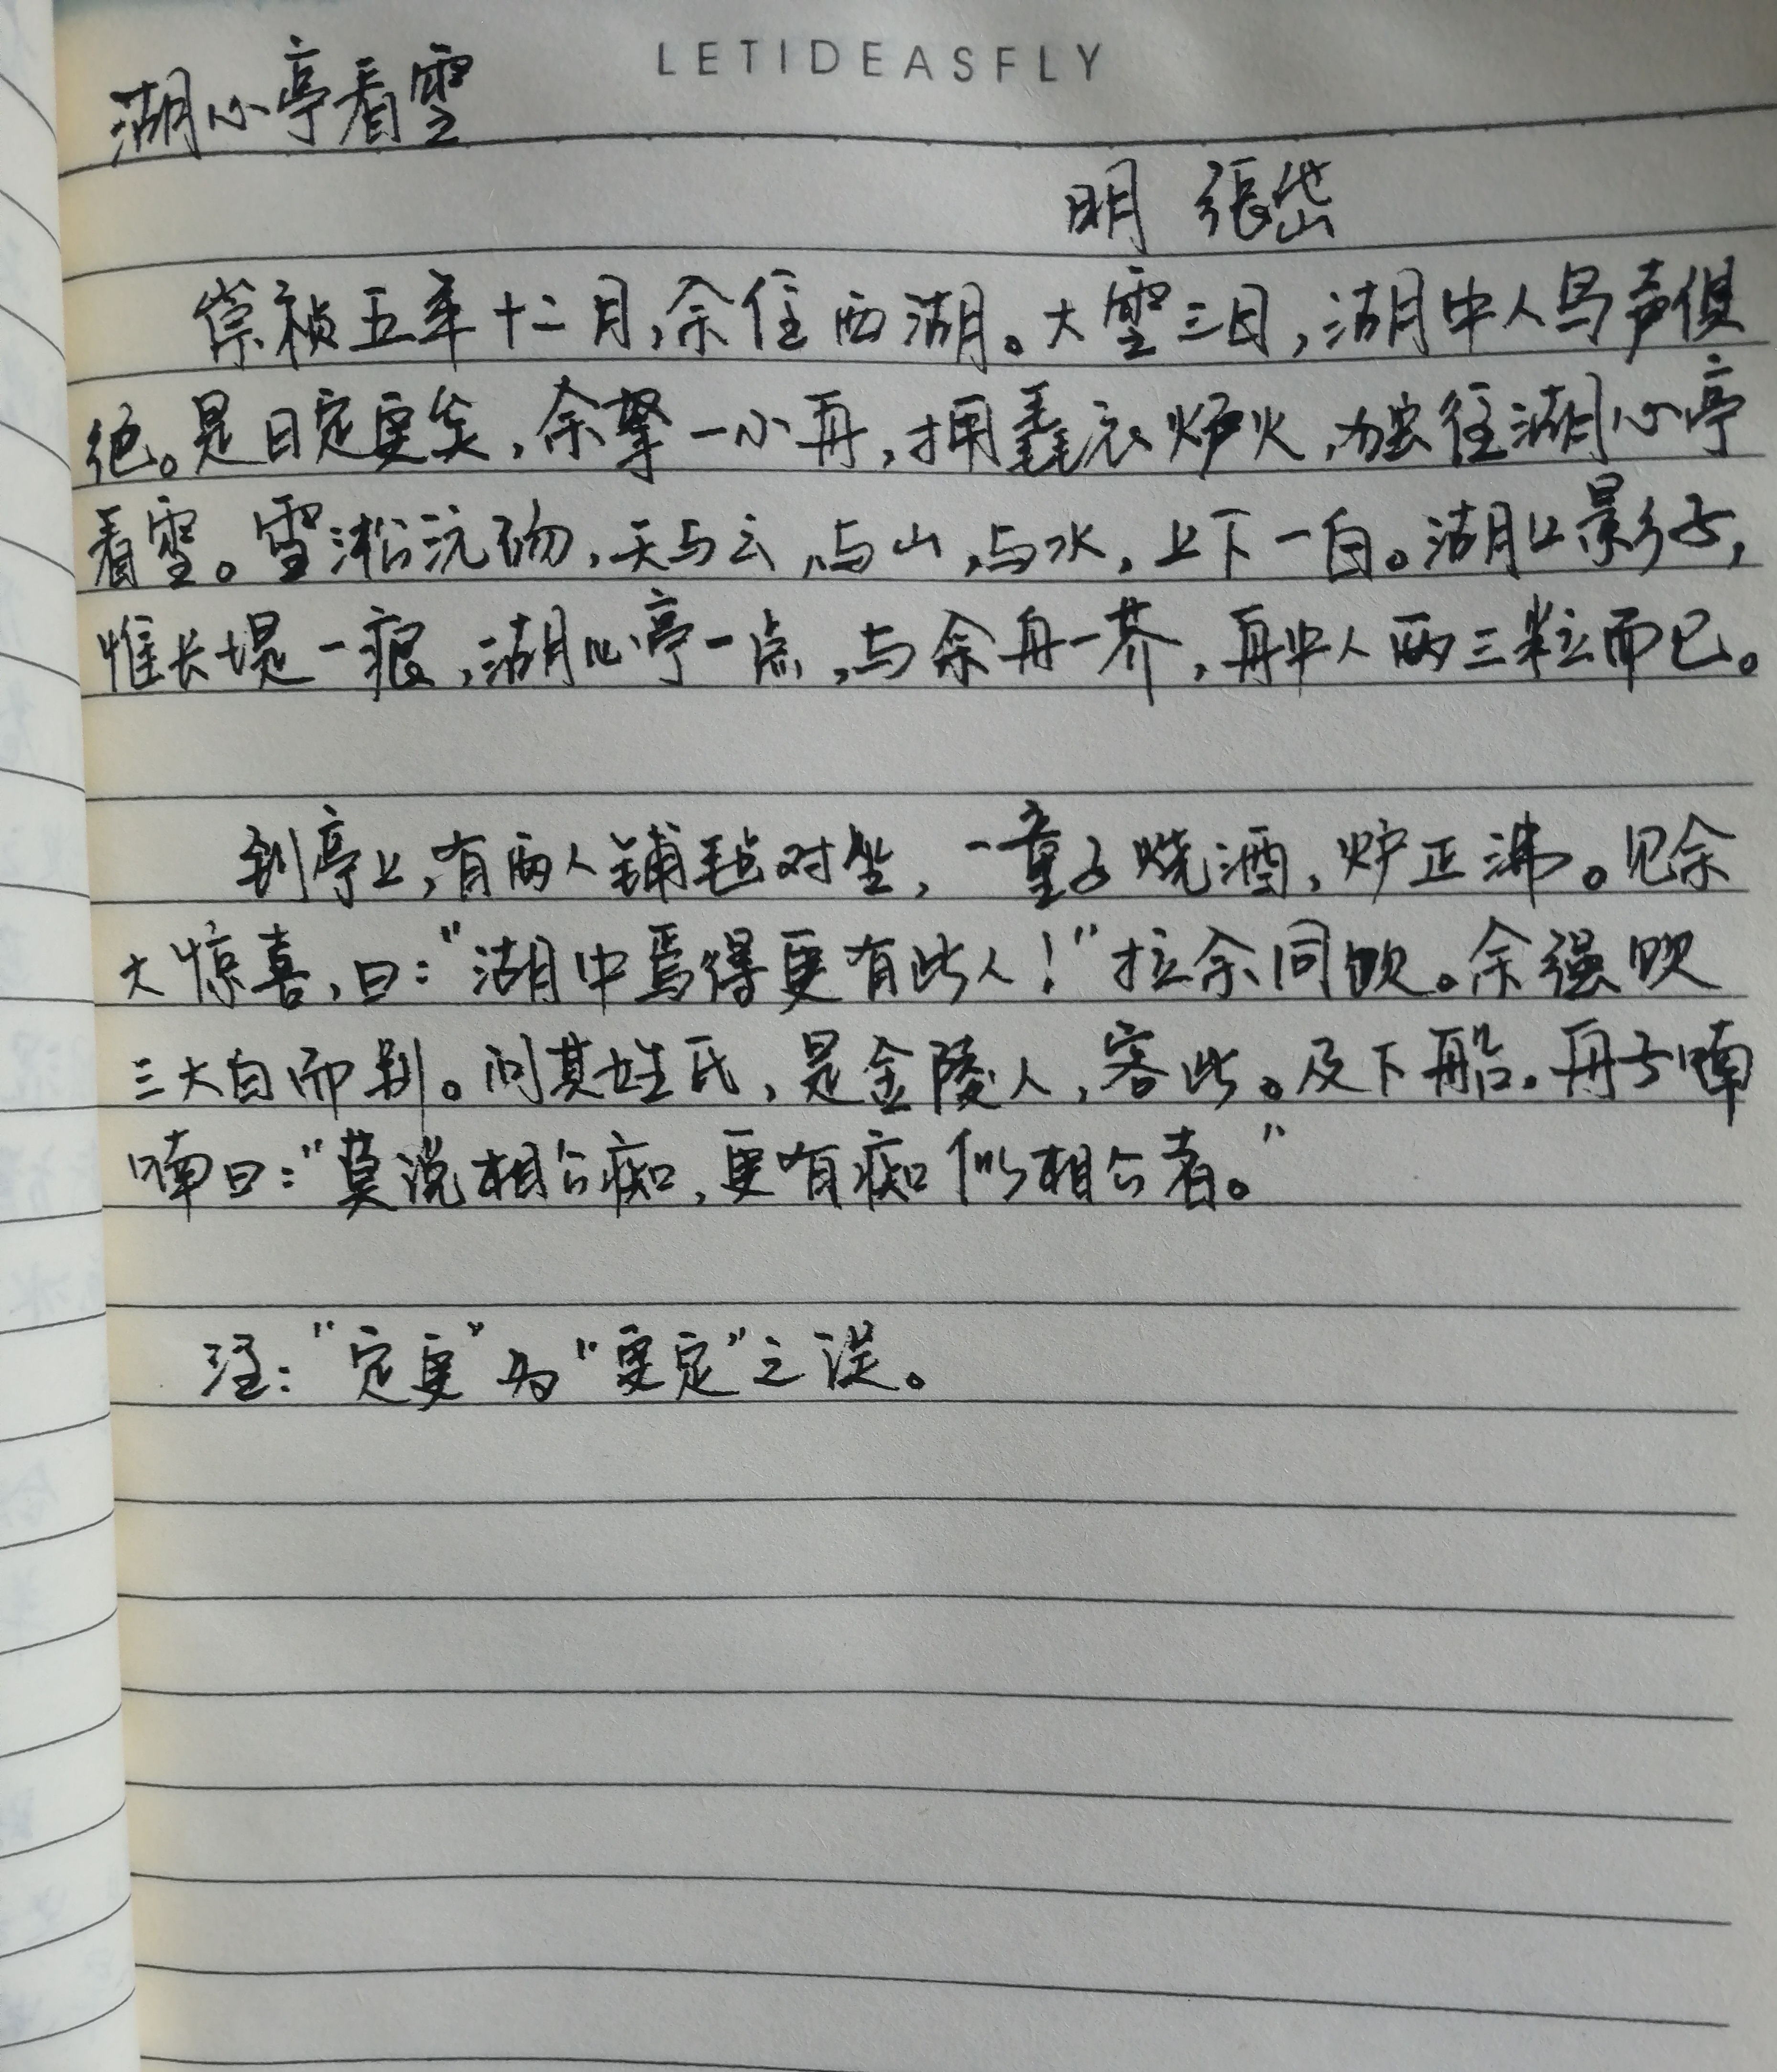 LETIDEASFLY
湖心亭看雪
明 張岱
崇祯五年十二月,余住西湖。大雪三日,湖中人鸟声俱
绝。是日定更矣,余拏一小舟,拥毳衣炉火,独往湖心亭
看雪。雪淞沆砀,天与云,与山,与水,上下一白。湖上影子,
惟长堤一痕,湖心亭一点,与余舟一芥,舟中人两三粒而已。
到亭上,有两人铺毡对坐,一童子烧酒,炉正沸。见余
大惊喜,曰:"湖中焉得更有此人!"拉余同饮。余强饮
三大白而别。问其姓氏,是金陵人,客此。及下船,舟子喃
喃曰:"莫说相公痴,更有痴似相公者。"
注:"定更"为"更定"之误。